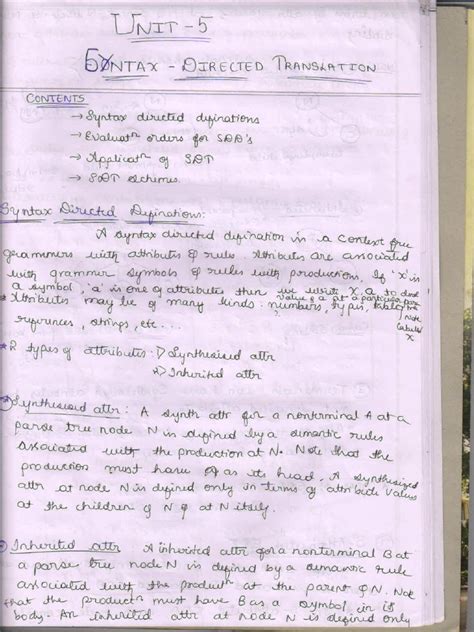 UNIT-5
SYNTAX - DIRECTED TRANSLATION
CONTENTS
→ Syntax directed definations
→ Evaluatn orders for SDD's
→ Applicatn of SDT
→ SDT schemes.
Syntax Directed Definations:
A syntax directed defination is a context free
grammers with attributes & rules. Attributes are associated
with grammer symbols & rules with productions, If 'x' is
a symbol, 'a' is one of attributes then we write x.a to
value of a at a particular
* Attributes may be of many kinds: numbers, types, table
node
references, strings, etc...
X
* 2 types of attributes: 1) Synthesised attr
2) Inherited attr
1) Synthesised attr: A synth attr for a nonterminal A at a
parse tree node N is defined by a semantic rules
associated with the production at N. Note that the
production must have A as its head. A synthesized
attr at node N is defined only in terms of attribute values
at the children of N & at N itself.
2) Inherited attr A inherited attr for a nonterminal B at
a parse tree node N is defined by a semantic rule
associated with the productn at the parent of N. Note
that the productn must have B as a symbol in its
body. An inherited attr at node N is defined only